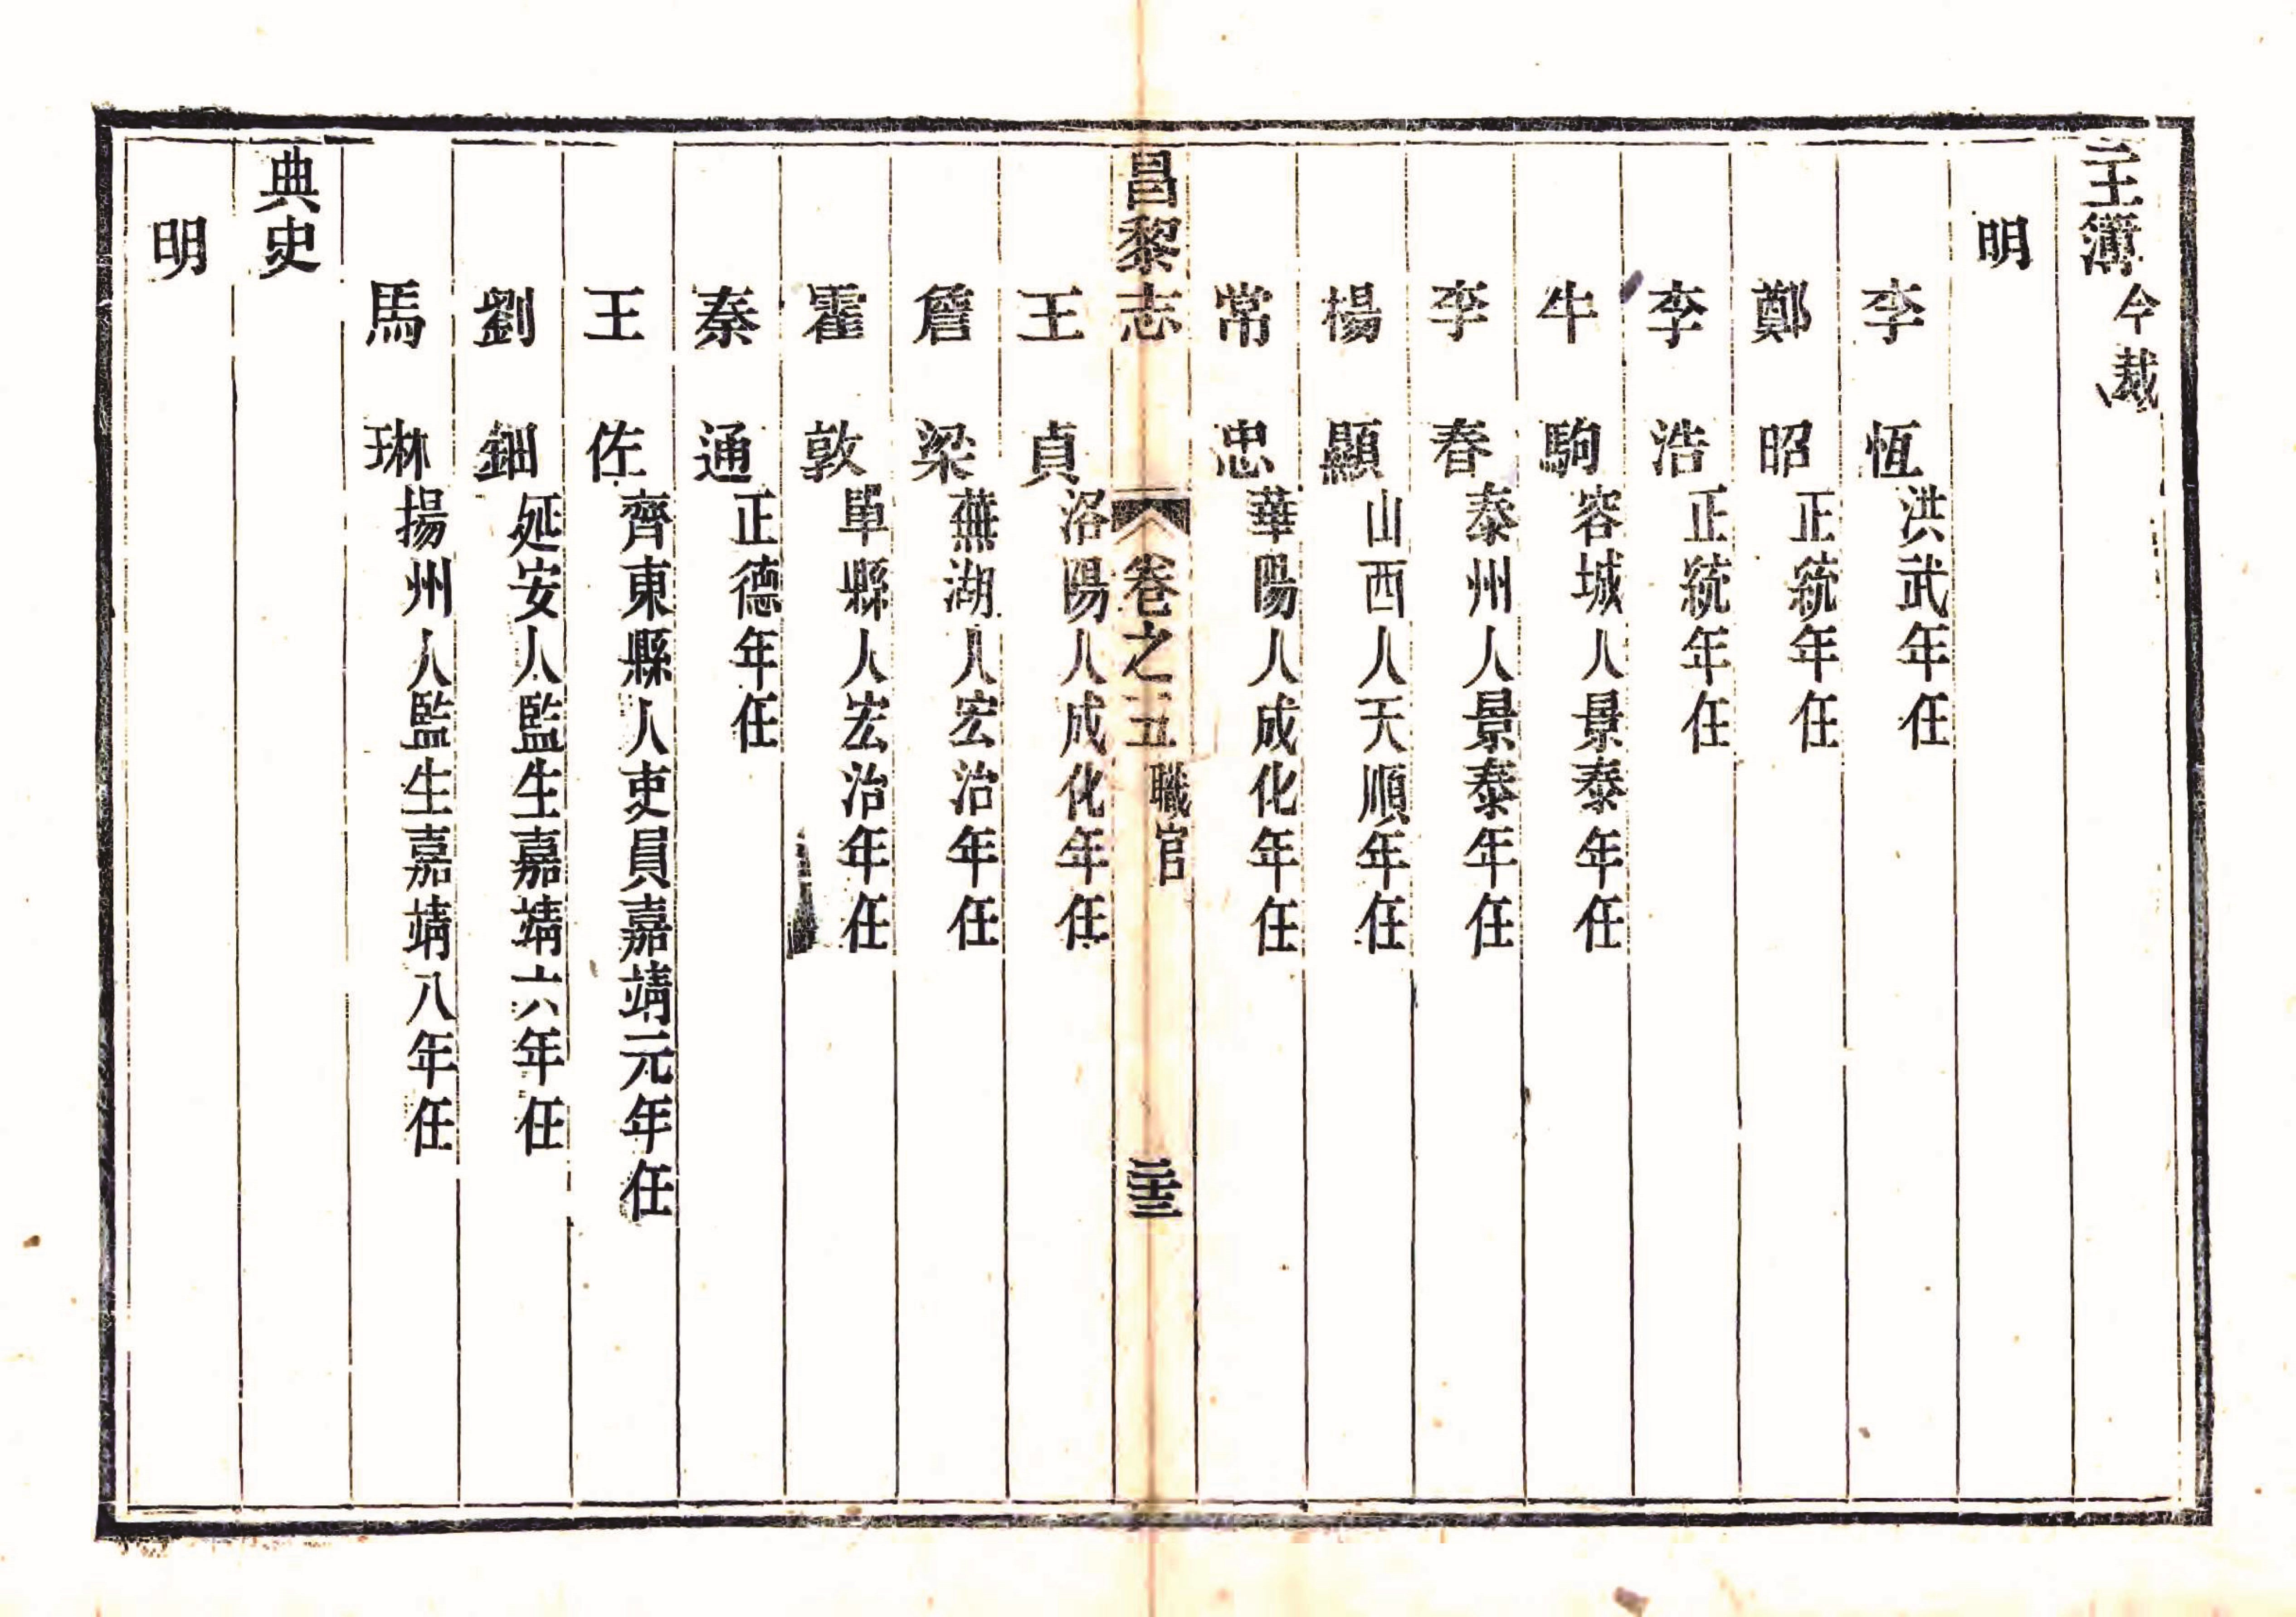 主簿今裁
明
李恆洪武年任
鄭昭正統年任
李浩正統年任
牛駒容城人景泰年任
李春泰州人景泰年任
楊顯山西人天順年任
常忠華陽人成化年任
昌黎志 卷之五 職官 二十三
王貞洛陽人成化年任
詹梁蕪湖人宏治年任
霍敦單縣人宏治年任
秦通正德年任
王佐齊東縣人吏員嘉靖元年任
劉鈿延安人監生嘉靖六年任
馬琳揚州人監生嘉靖八年任
典史
明